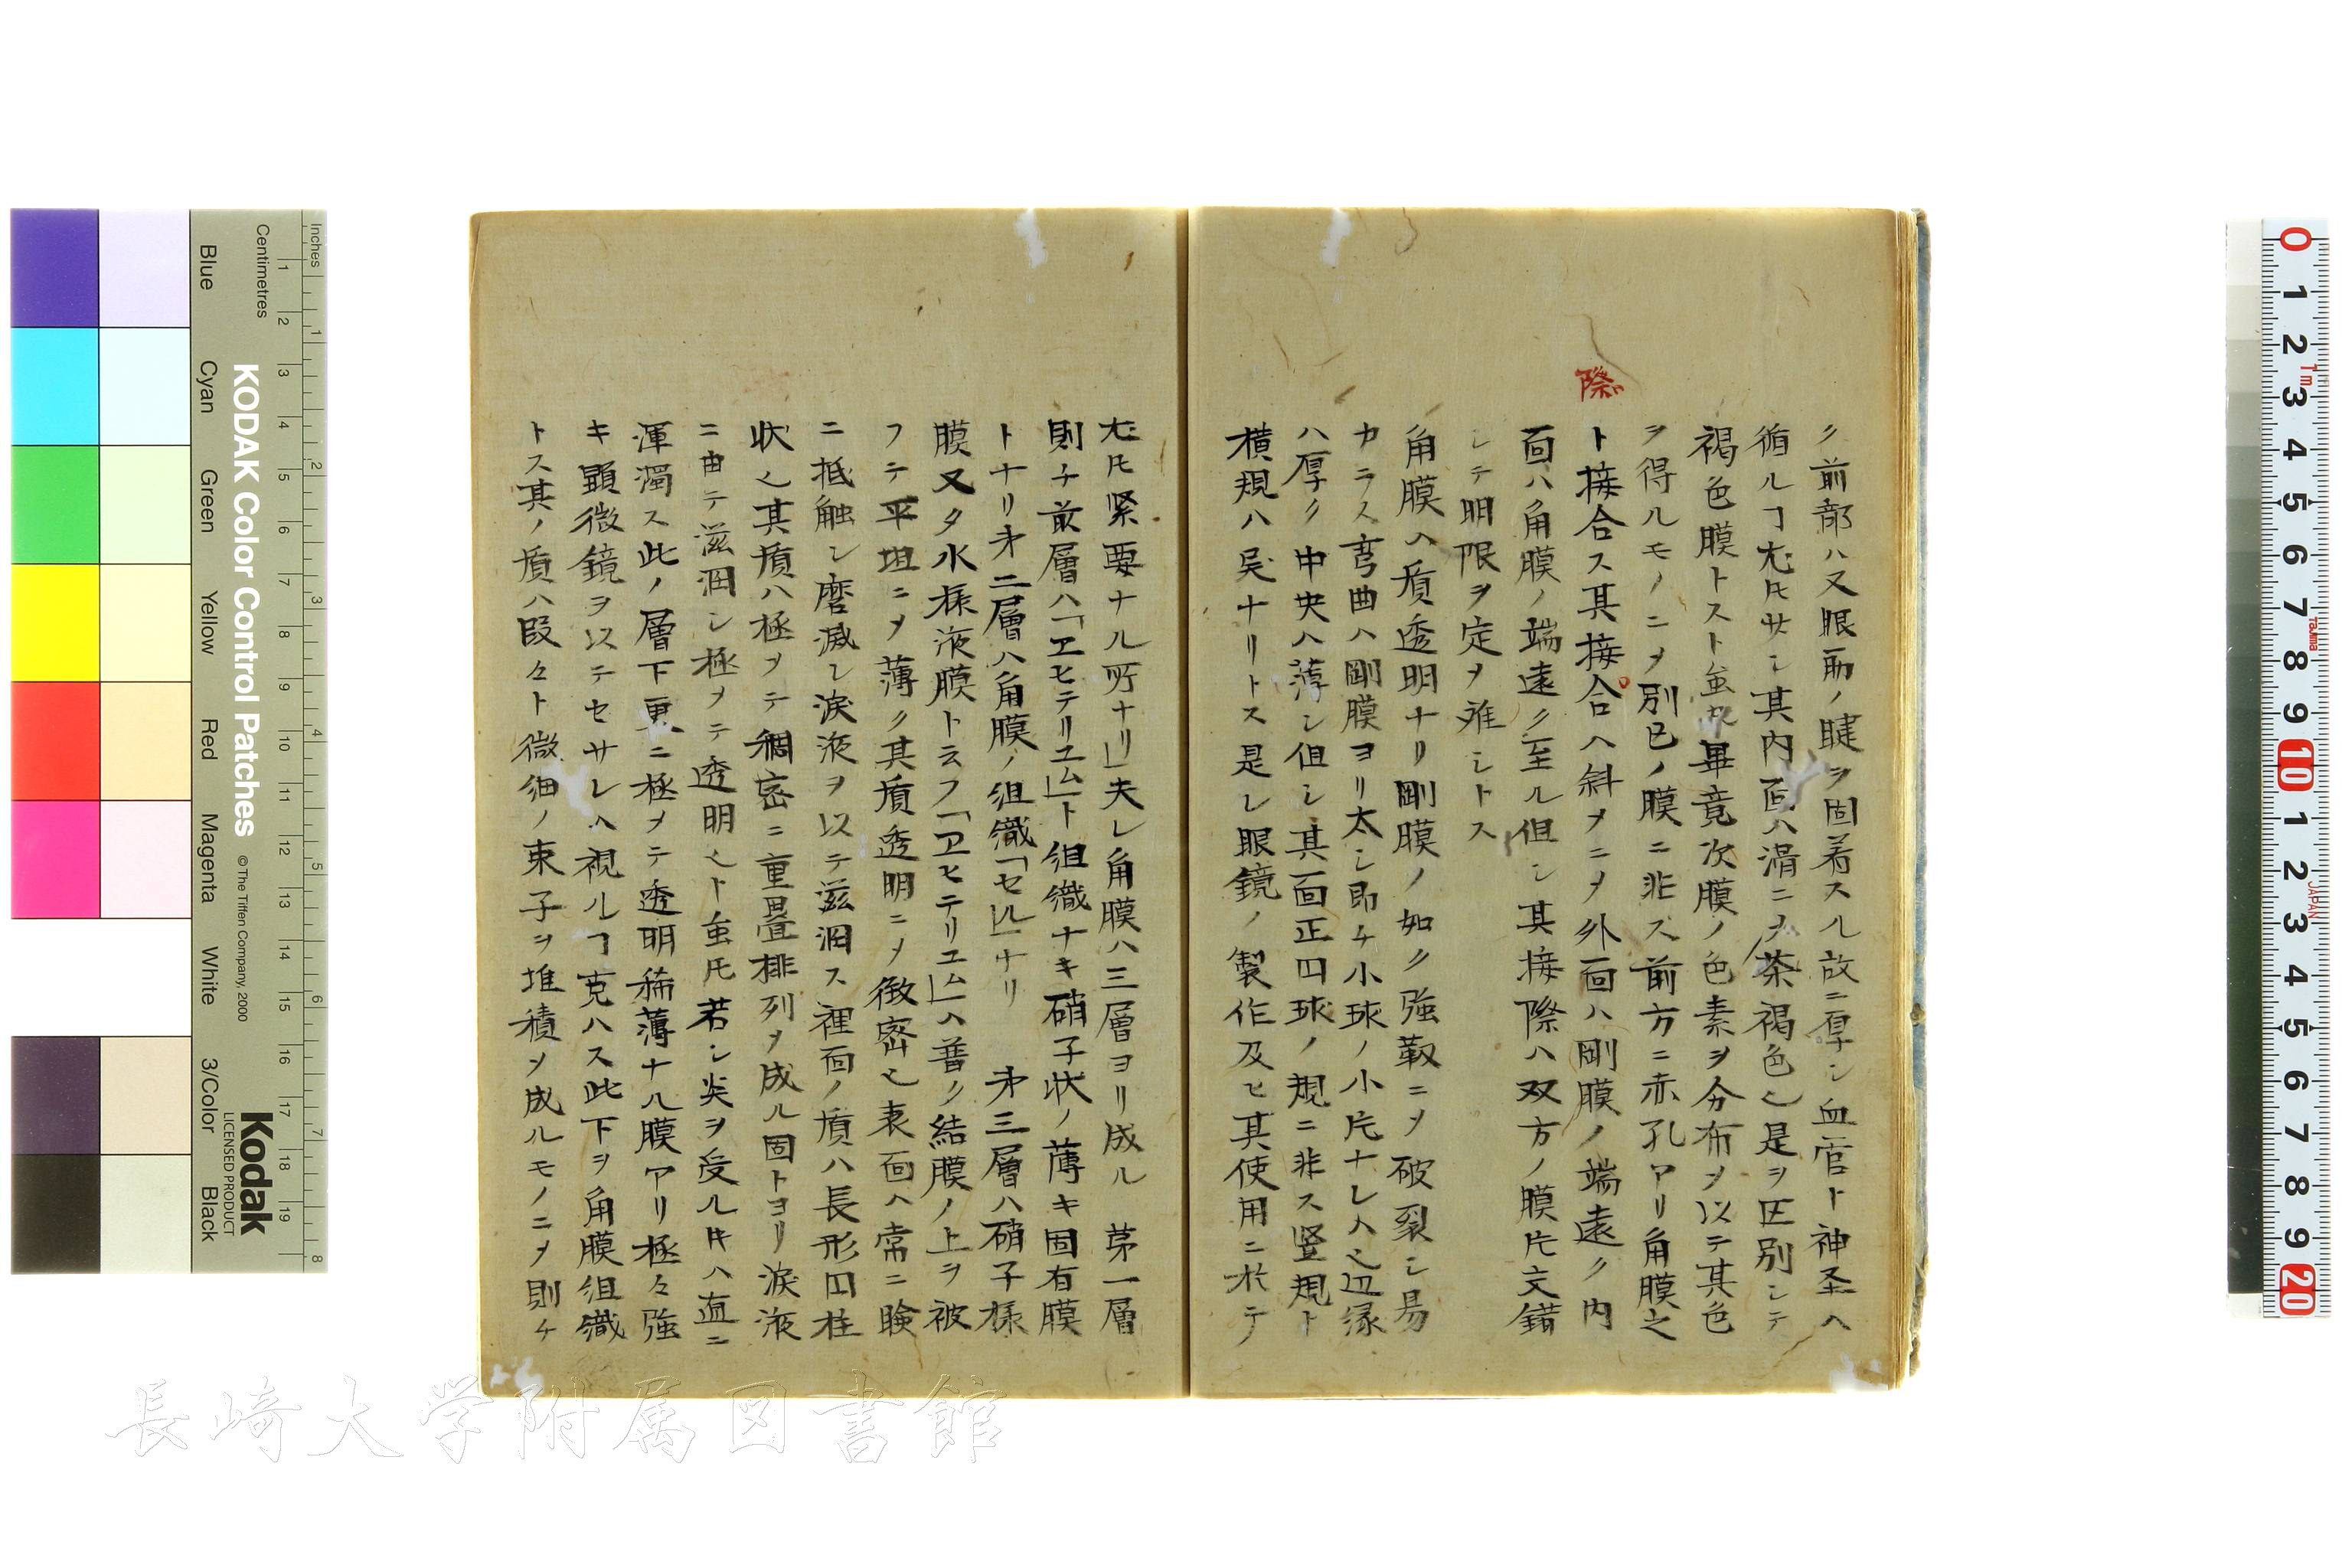 際
ク前部ハ又眼筋ノ腱ヲ固着スル故ニ厚シ血管ト神圣ヘ
循ルヿ尤㔫サシ其内面ハ滑ニ〆茶褐色也是ヲ区別シテ
褐色膜トスト虽㔫畢竟次膜ノ色素ヲ分布〆以テ其色
ヲ得ルモノニ〆別已ノ膜ニ非ス前方ニ赤孔アリ角膜之
ト接合ス其接合ヘ斜〆ニ〆外面ハ剛膜ノ端遠ク内
面ハ角膜ノ端遠ク至ル但シ其接際ハ双方ノ膜片交錯
シテ明限ヲ定〆难シトス
角膜ヘ質透明ナリ剛膜ノ如ク強靱ニ〆破裂シ易
カラス弯曲ハ剛膜ヨリ太シ即チ小球ノ小片ナレハ也辺縁
ハ厚ク中央ハ薄シ但シ其面正円球ノ規ニ非ス竪規ト
横規ハ㕦ナリトス是レ眼鏡ノ製作及ヒ其使用ニ於テ
尤㔫紧要ナル所ナリ」夫レ角膜ハ三層ヨリ成ル 第一層
則チ前層ハ「ヱヒテリユム」ト組織ナキ硝子状ノ薄キ固有膜
トナリ㐧二層ハ角膜ノ組織「セル」ナリ 㐧三層ハ硝子様
膜又タ水様液膜ト云フ「ヱヒテリユム」ヘ普ク結膜ノ上ヲ被
フテ平坦ニ〆薄ク其質透明ニ〆緻密也表面ヘ常ニ瞼
ニ抵触シ磨滅シ涙液ヲ以テ滋润ス裡面ノ質ハ長形円柱
状也其質ハ極〆テ稠密ニ重畳排列〆成ル固トヨリ涙液
ニ由テ滋润シ極〆テ透明也ト虽㔫若シ炎ヲ受ル𪜈ハ直ニ
渾濁ス此ノ層下更ニ極〆テ透明稀薄ナル膜アリ極々強
キ顕微鏡ヲ以テセサレハ視ルヿ克ハス此下ヲ角膜組織
トス其ノ質ハ段々ト微細ノ束子ヲ堆積〆成ルモノニ〆則チ
KODAK Color Control Patches
© The Tiffen Company, 2000
Kodak
LICENSED PRODUCT
Inches
Centimetres
Blue
Cyan
Green
Yellow
Red
Magenta
White
3/Color
Black
長崎大学附属図書館